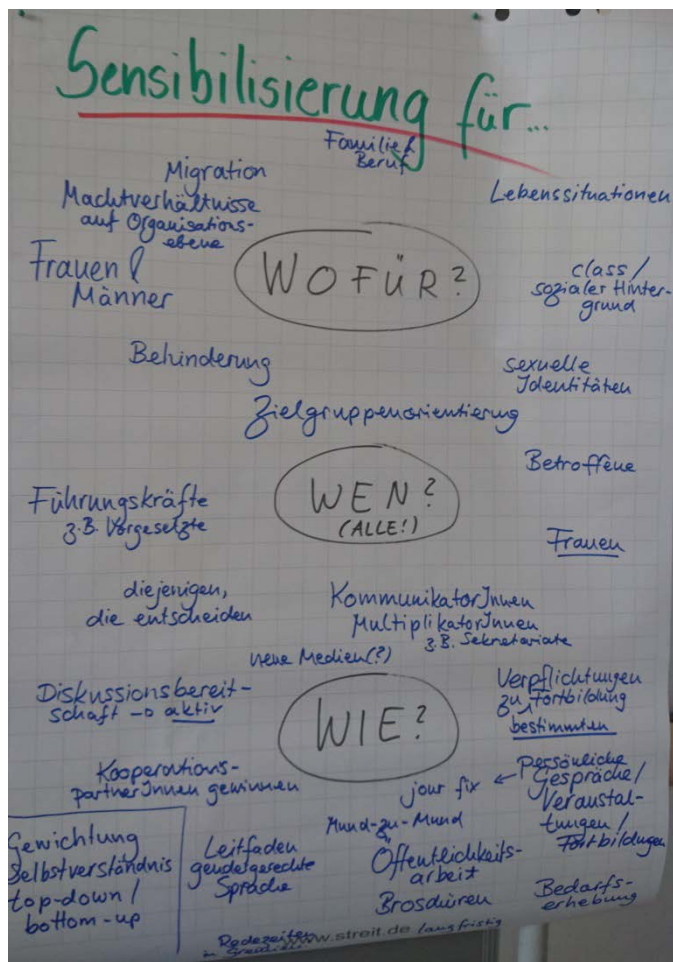 Sensibilisierung für...
Familie &
Beruf
Migration
Machtverhältnisse
auf Organisations-
ebene
Lebenssituationen
Frauen &
Männer
WOFÜR?
class /
sozialer Hinter-
grund
Behinderung
sexuelle
Identitäten
Zielgruppenorientierung
Betroffene
Führungskräfte
z.B. Vorgesetzte
WEN?
(ALLE!)
Frauen
diejenigen,
die entscheiden
KommunikatorInnen
MultiplikatorInnen
z.B. Sekretariate
neue Medien(?)
Diskussionsbereit-
schaft → aktiv
WIE?
Verpflichtungen
zu Fortbildung
bestimmten
Kooperations-
partnerInnen gewinnen
jour fix ← persönliche
Gespräche/
Veranstal-
tungen /
Fortbildungen
Mund-zu-Mund
Öffentlichkeits-
arbeit
Broschüren
Gewichtung
Selbstverständnis
top-down /
bottom-up
Leitfaden
gendergerechte
Sprache
Bedarfs-
erhebung
Redezeiten
in
www.streit.de
langfristig